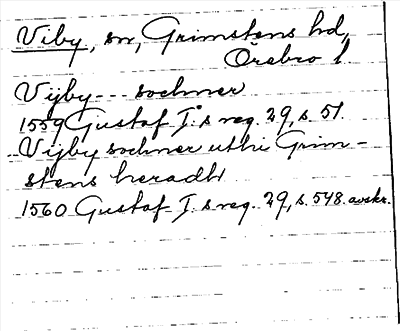 Viby, sn, Grimstens hd,
Örebro l.
Vijby --- sochner
1559 Gustaf I:s reg. 29, s. 51.
Vijby sochner uthi Grim-
stens heradh
1560 Gustaf I:s reg. 29, s. 548. avskr.